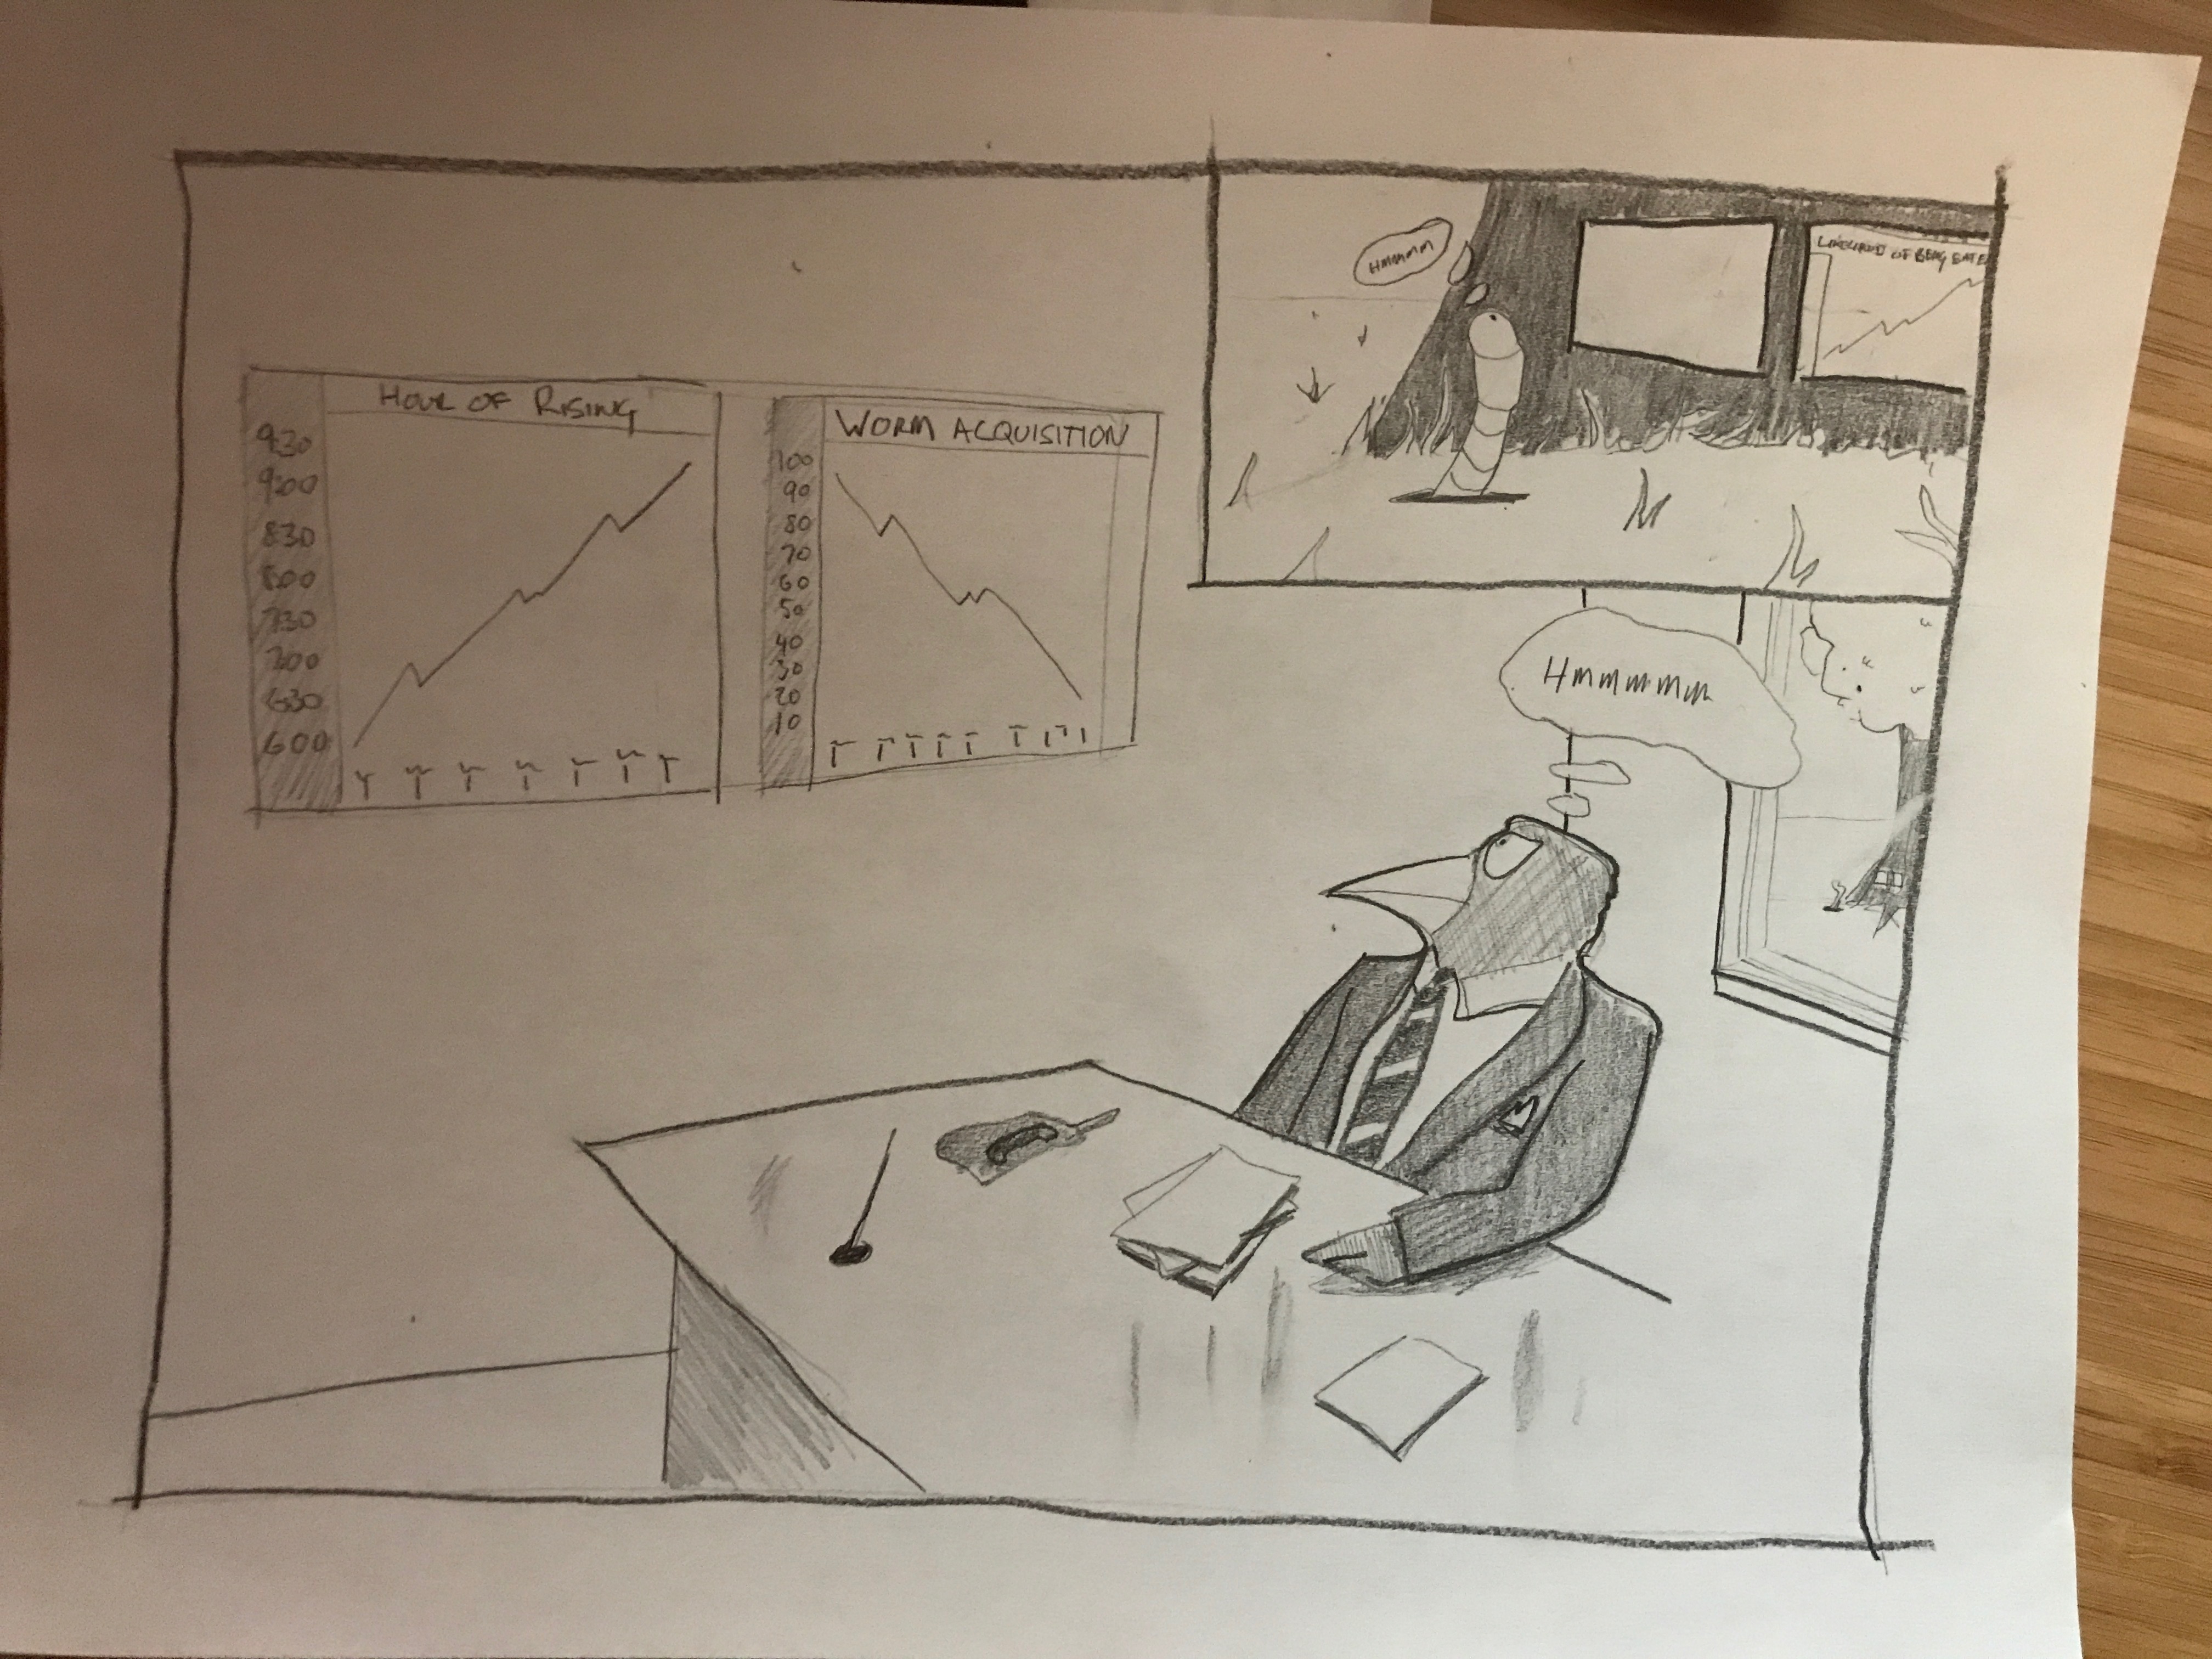 HOUR OF RISING
930
900
830
800
730
700
630
600
WORM ACQUISITION
100
90
80
70
60
50
40
30
20
10
Hmmmm
LIKELIHOOD OF BEING EATE
Hmmmmm